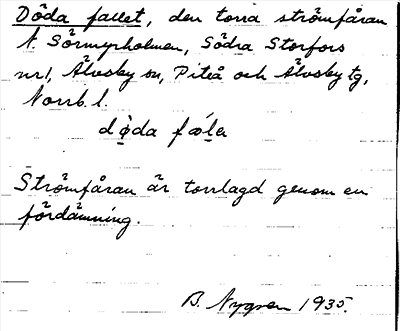 Döda fallet, den torra strömfåran
t. Sörmyrholmen, Södra Storfors
nr 1, Älvsby sn, Piteå och Älvsby tg,
Norrb. l.
dø̣da fæḷa
Strömfåran är torrlagd genom en
fördämning.
B. Nygren 1935.